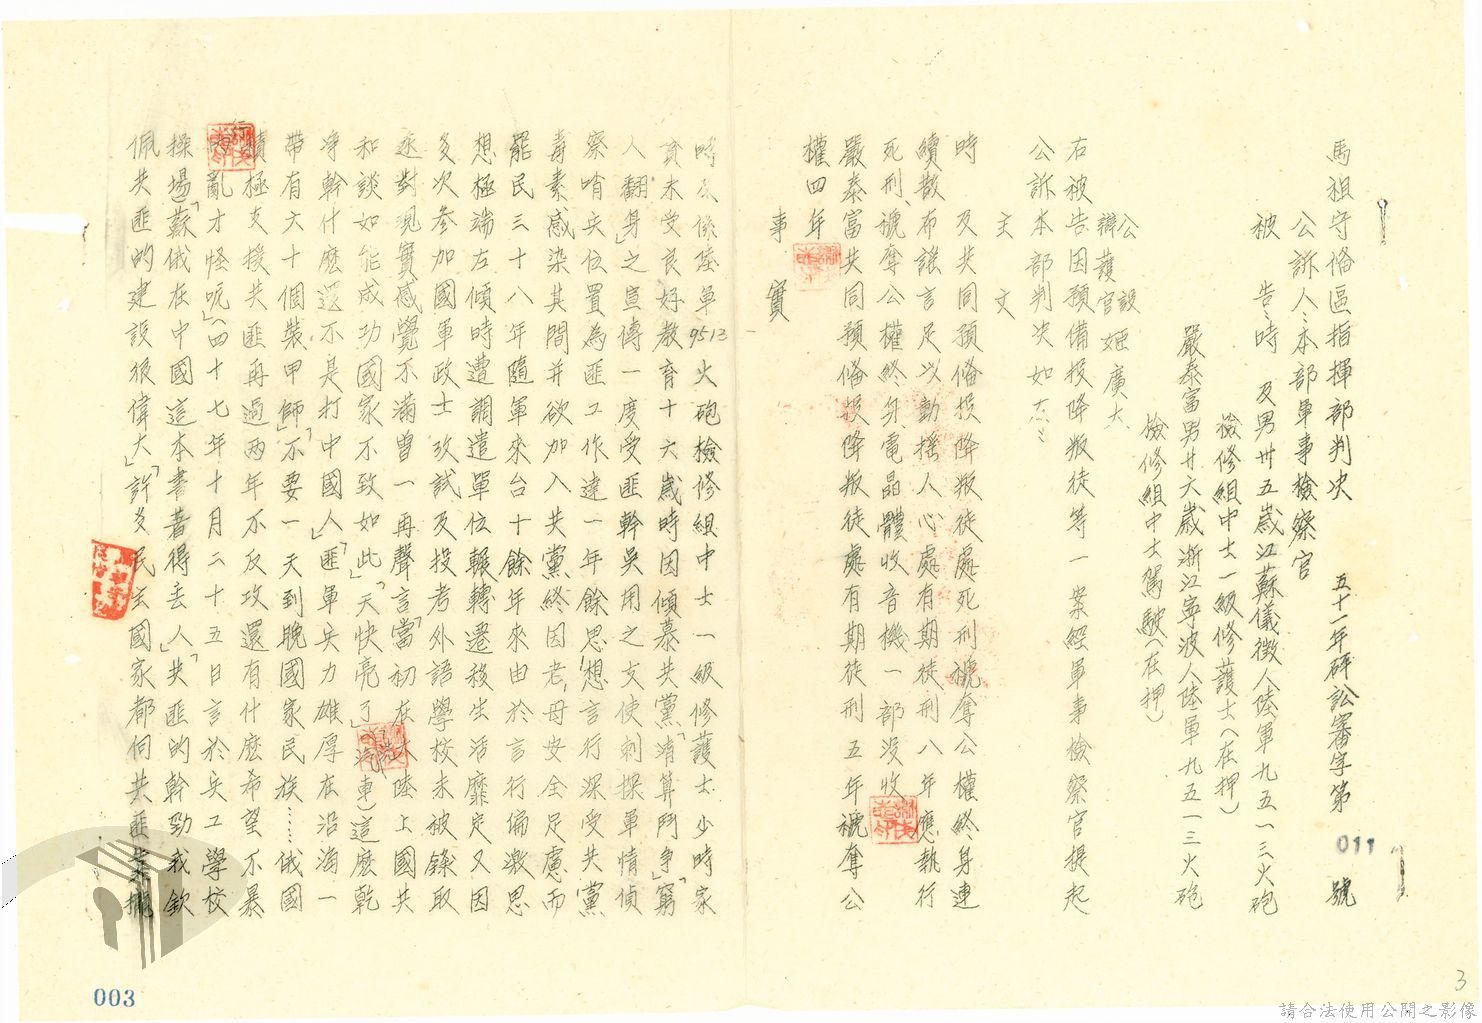 馬祖守備區指揮部判决 五十一年砰訟審字第 011 號
公訴人：本部軍事檢察官
被 告：時 及男卅五歲江蘇儀徵人陸軍九五一三火砲
檢修組中士一級修護士(在押)
嚴泰富男廿六歲浙江寧波人陸軍九五一三火砲
檢修組中士駕駛(在押)
公設
辯護官 姬廣大
右被告因預備投降叛徒等一案經軍事檢察官提起
公訴本部判决如左：
主 文
時 及共同預備投降叛徒處死刑褫奪公權終身連
續散布謠言足以動搖人心處有期徒刑八年應執行
死刑、褫奪公權終身、電晶體收音機一部沒收、
嚴泰富共同預備投降叛徒處有期徒刑五年褫奪公
權四年
事 實
時及係陸軍9513火砲檢修組中士一級修護士少時家
貧未受良好教育十六歲時因傾慕共黨「清算鬥爭」「窮
人翻身」之宣傳一度受匪幹吳用之支使刺探軍情偵
察哨兵位置為匪工作達一年餘思想言行深受共黨
毒素感染其間并欲加入共黨終因老母安全足慮而
罷民三十八年隨軍來台十餘年來由於言行偏激思
想極端左傾時遭調遣單位輾轉遷移生活靡定又因
多次參加國軍政士攷試及投考外語學校未被錄取
逐對現實感覺不滿曾一再聲言「當初在大陸上國共
和談如能成功國家不致如此」「天快亮了」(汽車)這麽乾
净幹什麽還不是打中國人」「匪軍兵力雄厚在沿海一
帶有六十個裝甲師」「不要一天到晚國家民族……俄國
積極支援共匪再過两年不反攻還有什麽希望不暴
亂才怪呃」(四十七年十月二十五日言於兵工學校
操場)「蘇俄在中國這本書著得丢人」「共匪的幹勁我欽
佩共匪的建設很偉大」「許多民主國家都伺共匪
003
3
請合法使用公開之影像